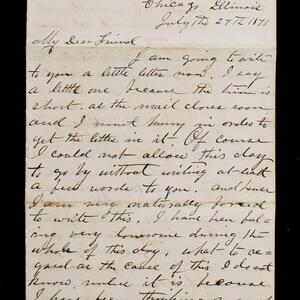 Chicago Illinois
July the 27th 1871
My Dear Friend
I am going to write
to you a little letter now. I say
a little one because the time is
short. as the mail closes soon
and I must hurry in order to
get the letter in it. Of course
I could not allow this day
to go by without writing at least
a few words to you. and hence
I am very naturally forced
to write this. I have been feel-
ing very lonesome during the
whole of this day, what to re-
gard as the cause of this I do not
know. unless it is because
I have been thinking